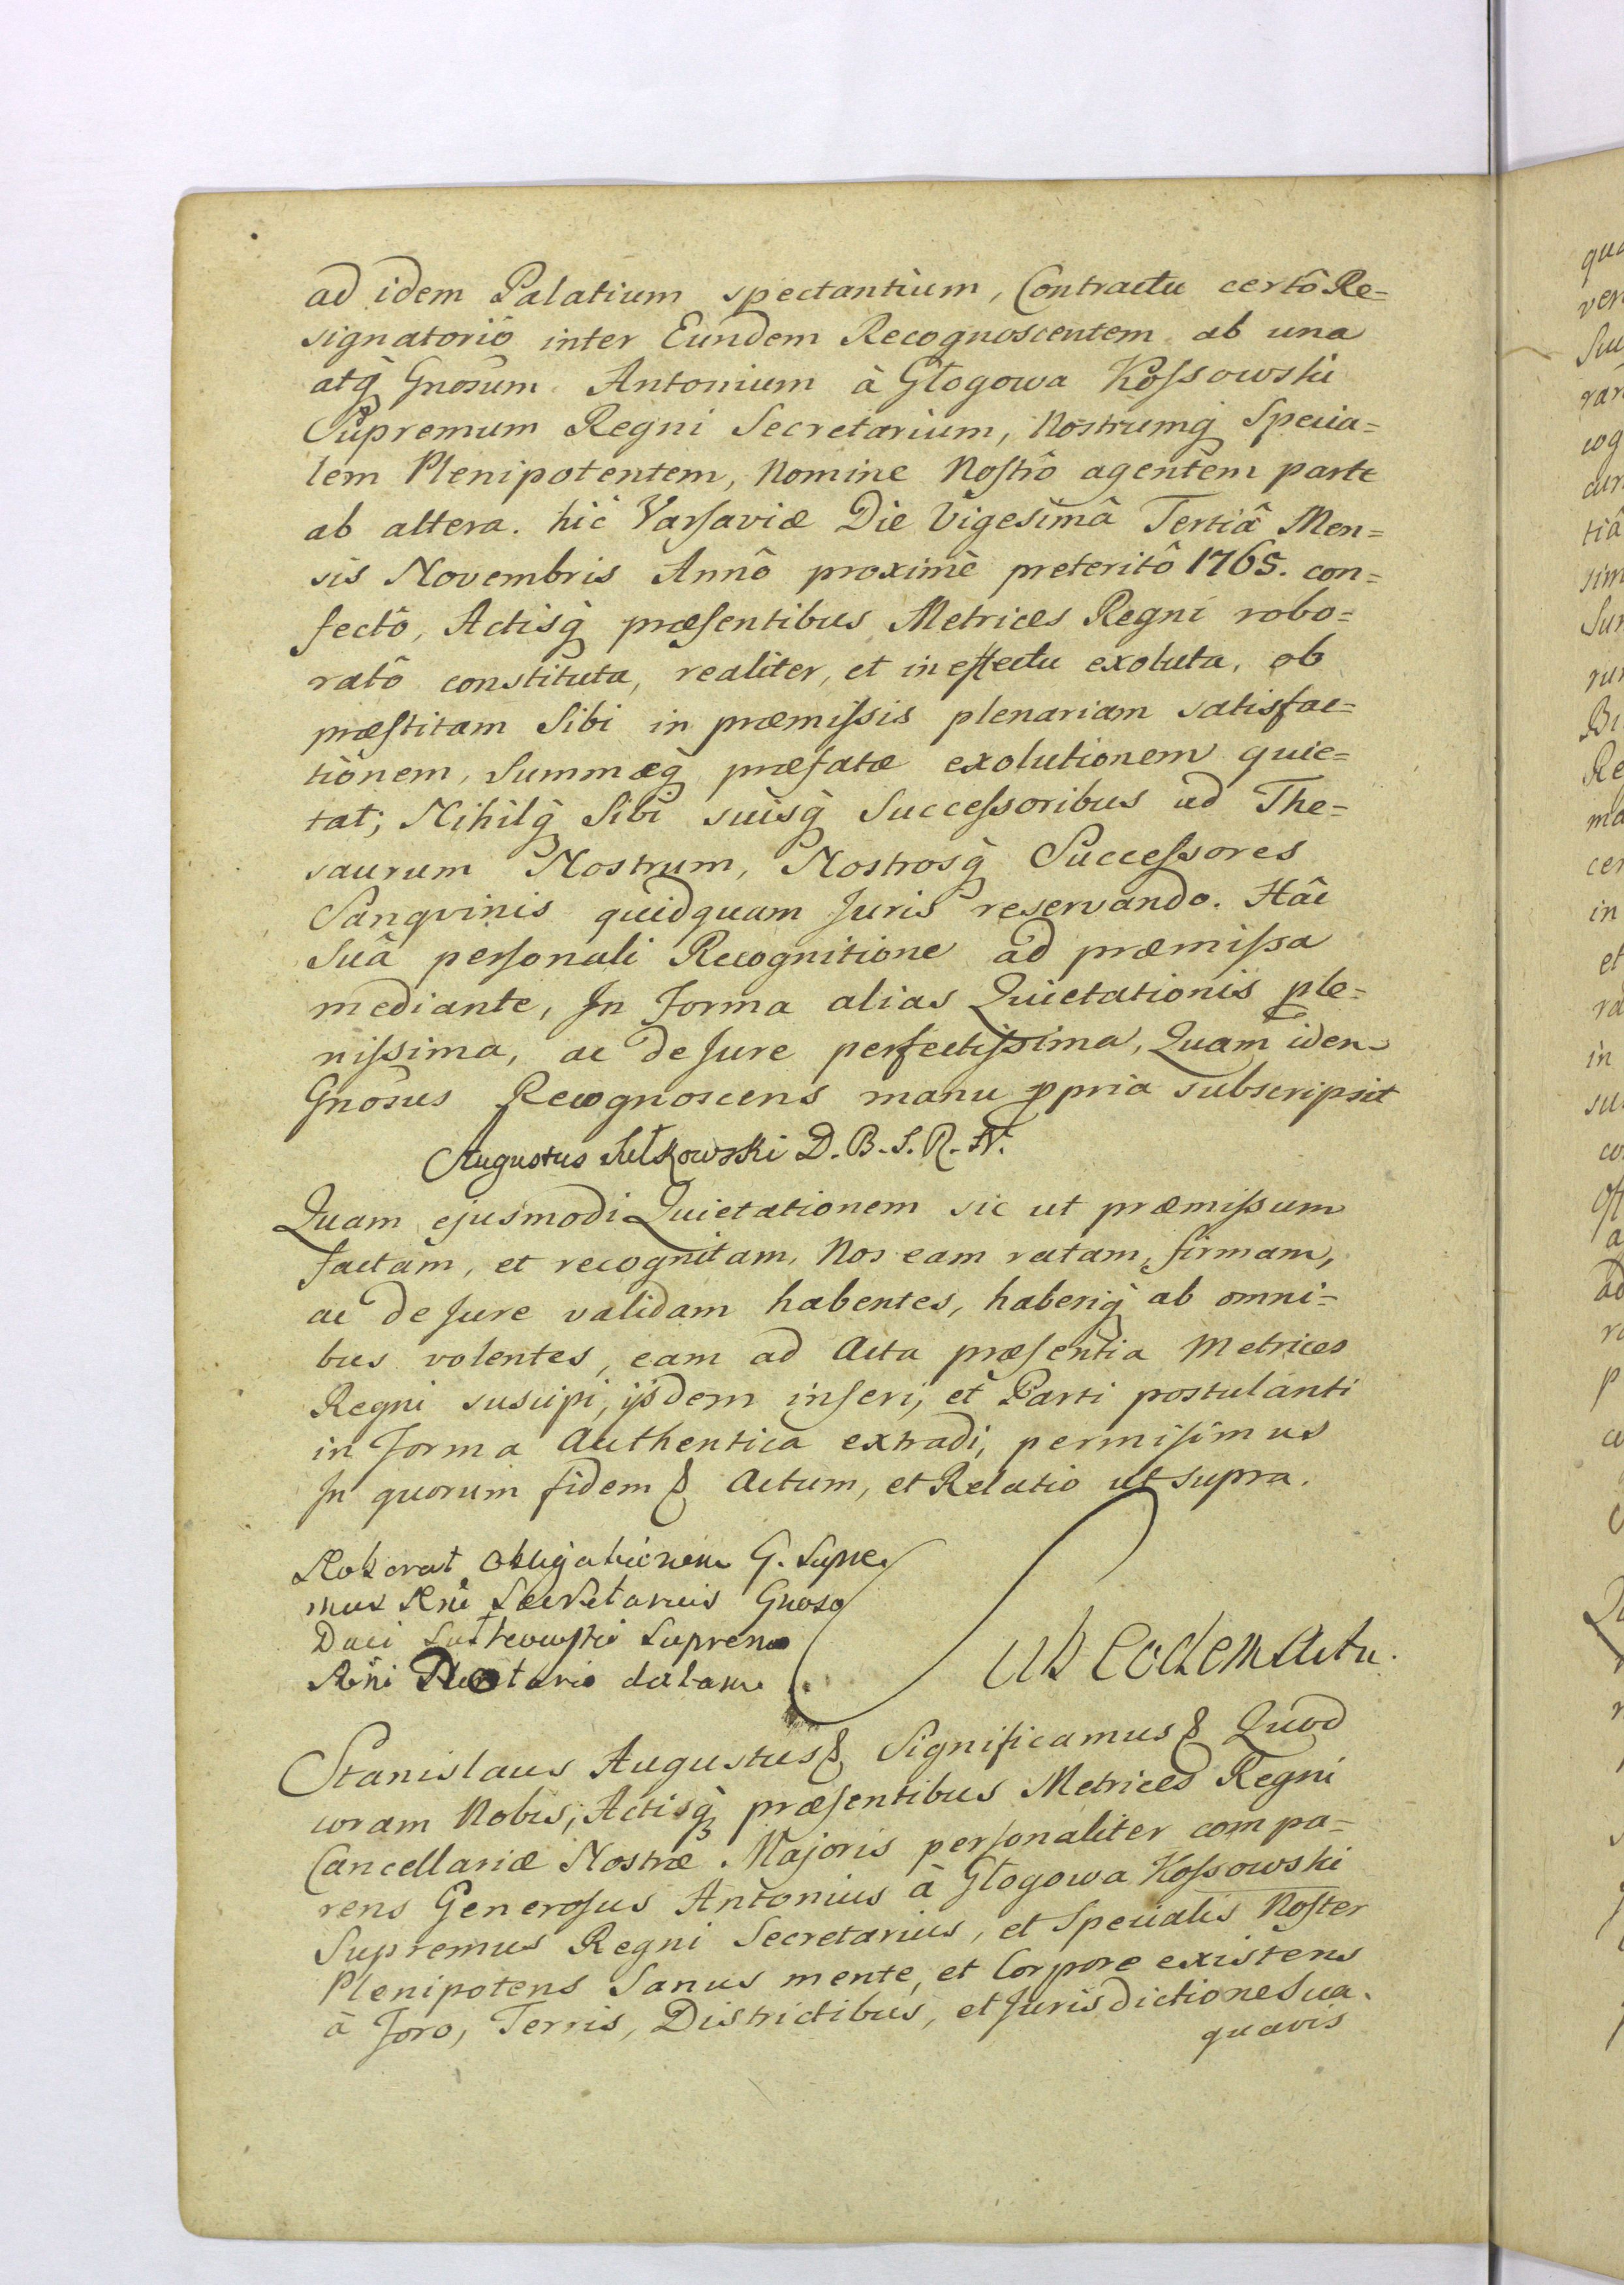 ad idem Palatium spectantium, Contractu certô Re=
signatoriô inter Eundem Recognoscentem ab una
atq̀ Gnosum Antonium à Głogowa Kossowski
Supremum Regni Secretarium, Nostrumq̀ Specia=
lem Plenipotentem, Nomine Nostrô agentem parte
ab altera. hîc Varsaviæ Die Vigesimâ Tertiâ Men=
sis Novembris Annô proximè preteritô 1765. con=
fectô, Actisq̀ præsentibus Metrices Regni robo=
ratô constituta, realiter, et in effectu exoluta, ob
præstitam Sibi in præmissis plenariam satisfac=
tionem, Summæq̀ præfatæ exolutionem quie=
tat; Nihilq̀ Sibi suisq̀ Successoribus ad The=
saurum Nostrum, Nostrosq̀ Successores
Sanqvinis quidquam Juris reservando. Hâc
Suâ personali Recognitione ad præmissa
mediante, In Forma alias Quietationis ple=
nissima, ac de Jure perfectissima, Quam idem
Gnosus Recognoscens manu ppria subscripsit
Augustus Sułkowski D. B. S. R. N.
Quam ejusmodi Quietationem sic ut præmissum
factam, et recognitam, Nos eam ratam, firmam,
ac de Jure validam habentes, haberiq̀ ab omni=
bus volentes, eam ad Acta præsentia Metrices
Regni suscipi, ijsdem inseri, et Parti postulanti
in Forma Authentica extradi, permisimus
In quorum fidem & Actum, et Relatio ut supra.
Roborat Obligationem G. Supre
mus Rni Secretarius Gnoso
Duci Sułkowski Supremo
Rni Notario datam
Sub eodem Actu.
Stanislaus Augustus & Significamus & Quod
coram Nobis, Actisq̀ præsentibus Metrices Regni
Cancellariæ Nostræ Majoris personaliter compa=
rens Generosus Antonius à Głogowa Kossowski
Supremus Regni Secretarius, et Specialis Noster
Plenipotens Sanus mente, et Corpore existens
à Foro, Terris, Districtibus, et Jurisdictione Sua
quavis